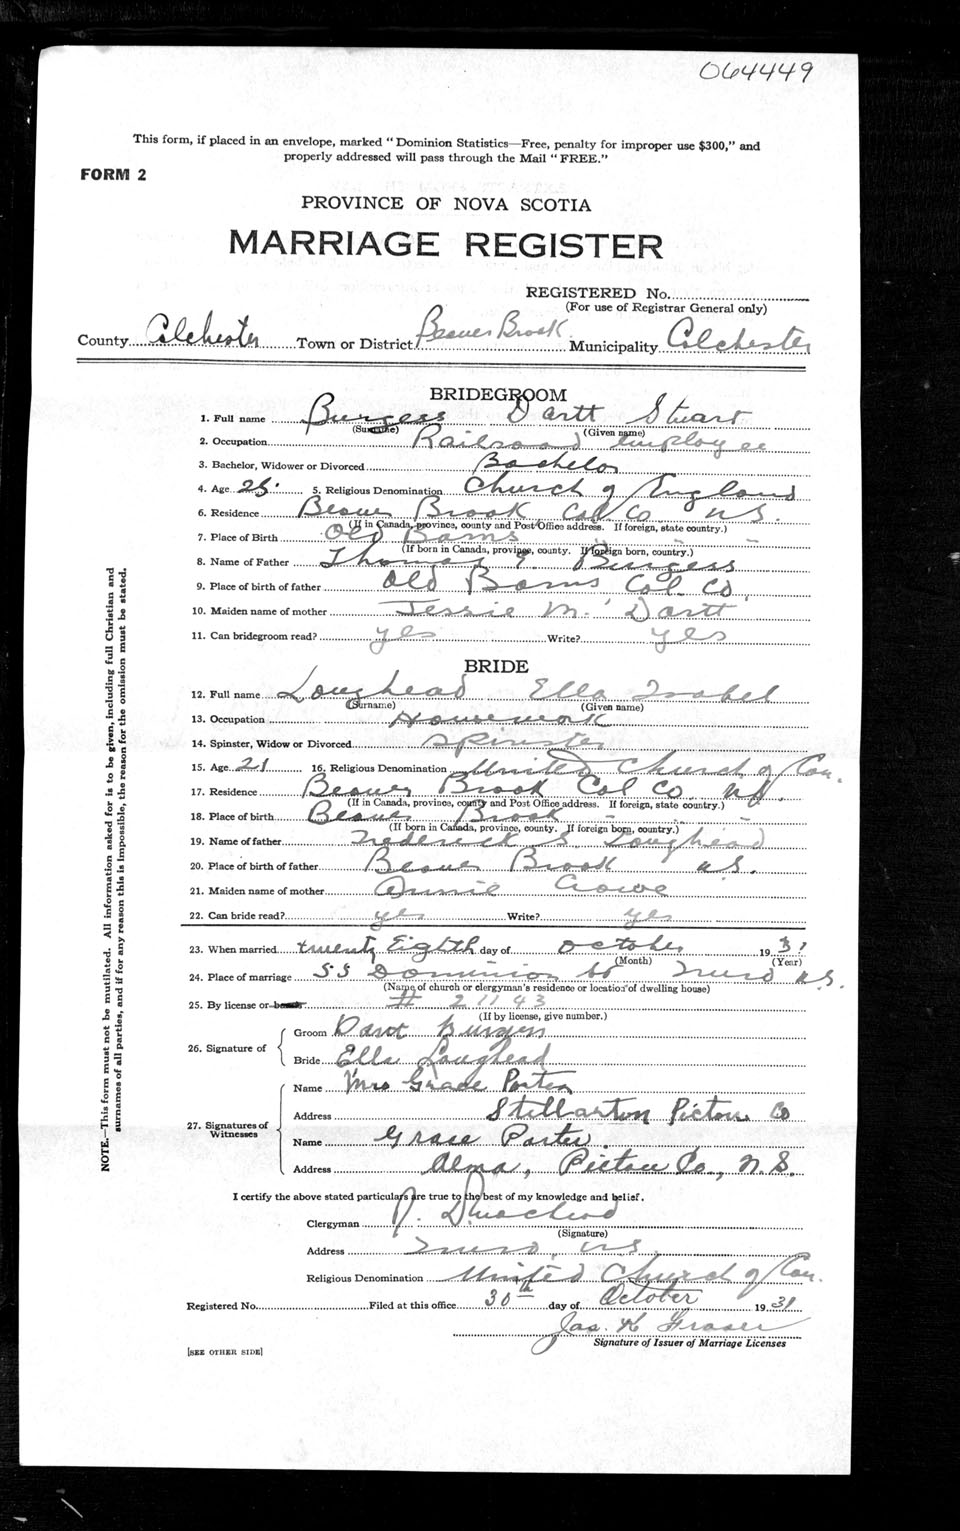 064449
This form, if placed in an envelope, marked "Dominion Statistics—Free, penalty for improper use $300," and
properly addressed will pass through the Mail "FREE."
FORM 2
PROVINCE OF NOVA SCOTIA
MARRIAGE REGISTER
REGISTERED No.
(For use of Registrar General only)
County Colchester Town or District Beaver Brook Municipality Colchester
BRIDEGROOM
1. Full name Burgess Dartt Stuart
(Surname) (Given name)
2. Occupation Railroad Employee
3. Bachelor, Widower or Divorced Bachelor
4. Age 25 5. Religious Denomination Church of England
6. Residence Beaver Brook Col Co N.S.
(If in Canada, province, county and Post Office address. If foreign, state country.)
7. Place of Birth Old Barns " " "
(If born in Canada, province, county. If foreign born, country.)
8. Name of Father Thomas E. Burgess
9. Place of birth of father Old Barns Col. Co.
10. Maiden name of mother Jessie M. Dartt
11. Can bridegroom read? yes Write? yes
BRIDE
12. Full name Loughead Ella Isabel
(Surname) (Given name)
13. Occupation Housework
14. Spinster, Widow or Divorced Spinster
15. Age 21 16. Religious Denomination United Church of Can.
17. Residence Beaver Brook Col Co. NS.
(If in Canada, province, county and Post Office address. If foreign, state country.)
18. Place of birth Beaver Brook - - -
(If born in Canada, province, county. If foreign born, country.)
19. Name of father Frederick S Loughead
20. Place of birth of father Beaver Brook N.S.
21. Maiden name of mother Annie Crowe
22. Can bride read? yes Write? yes
23. When married twenty Eighth day of October 1931
(Month) (Year)
24. Place of marriage 55 Dominion St Truro N.S.
(Name of church or clergyman's residence or location of dwelling house)
25. By license or banns # 21143
(If by license, give number.)
26. Signature of
Groom Dartt Burgess
Bride Ella Loughead
27. Signatures of Witnesses
Name Mrs Grace Porter
Address Stellarton Pictou Co
Name Grace Porter
Address Alma, Pictou Co., N.S.
I certify the above stated particulars are true to the best of my knowledge and belief.
Clergyman
(Signature)
Address Truro, N.S.
Religious Denomination United Church of Can.
Registered No. Filed at this office 30th day of October 1931
Jas. K Fraser
Signature of Issuer of Marriage Licenses
[SEE OTHER SIDE]
NOTE.—This form must not be mutilated. All information asked for is to be given, including full Christian and
surnames of all parties, and if for any reason this is impossible, the reason for the omission must be stated.